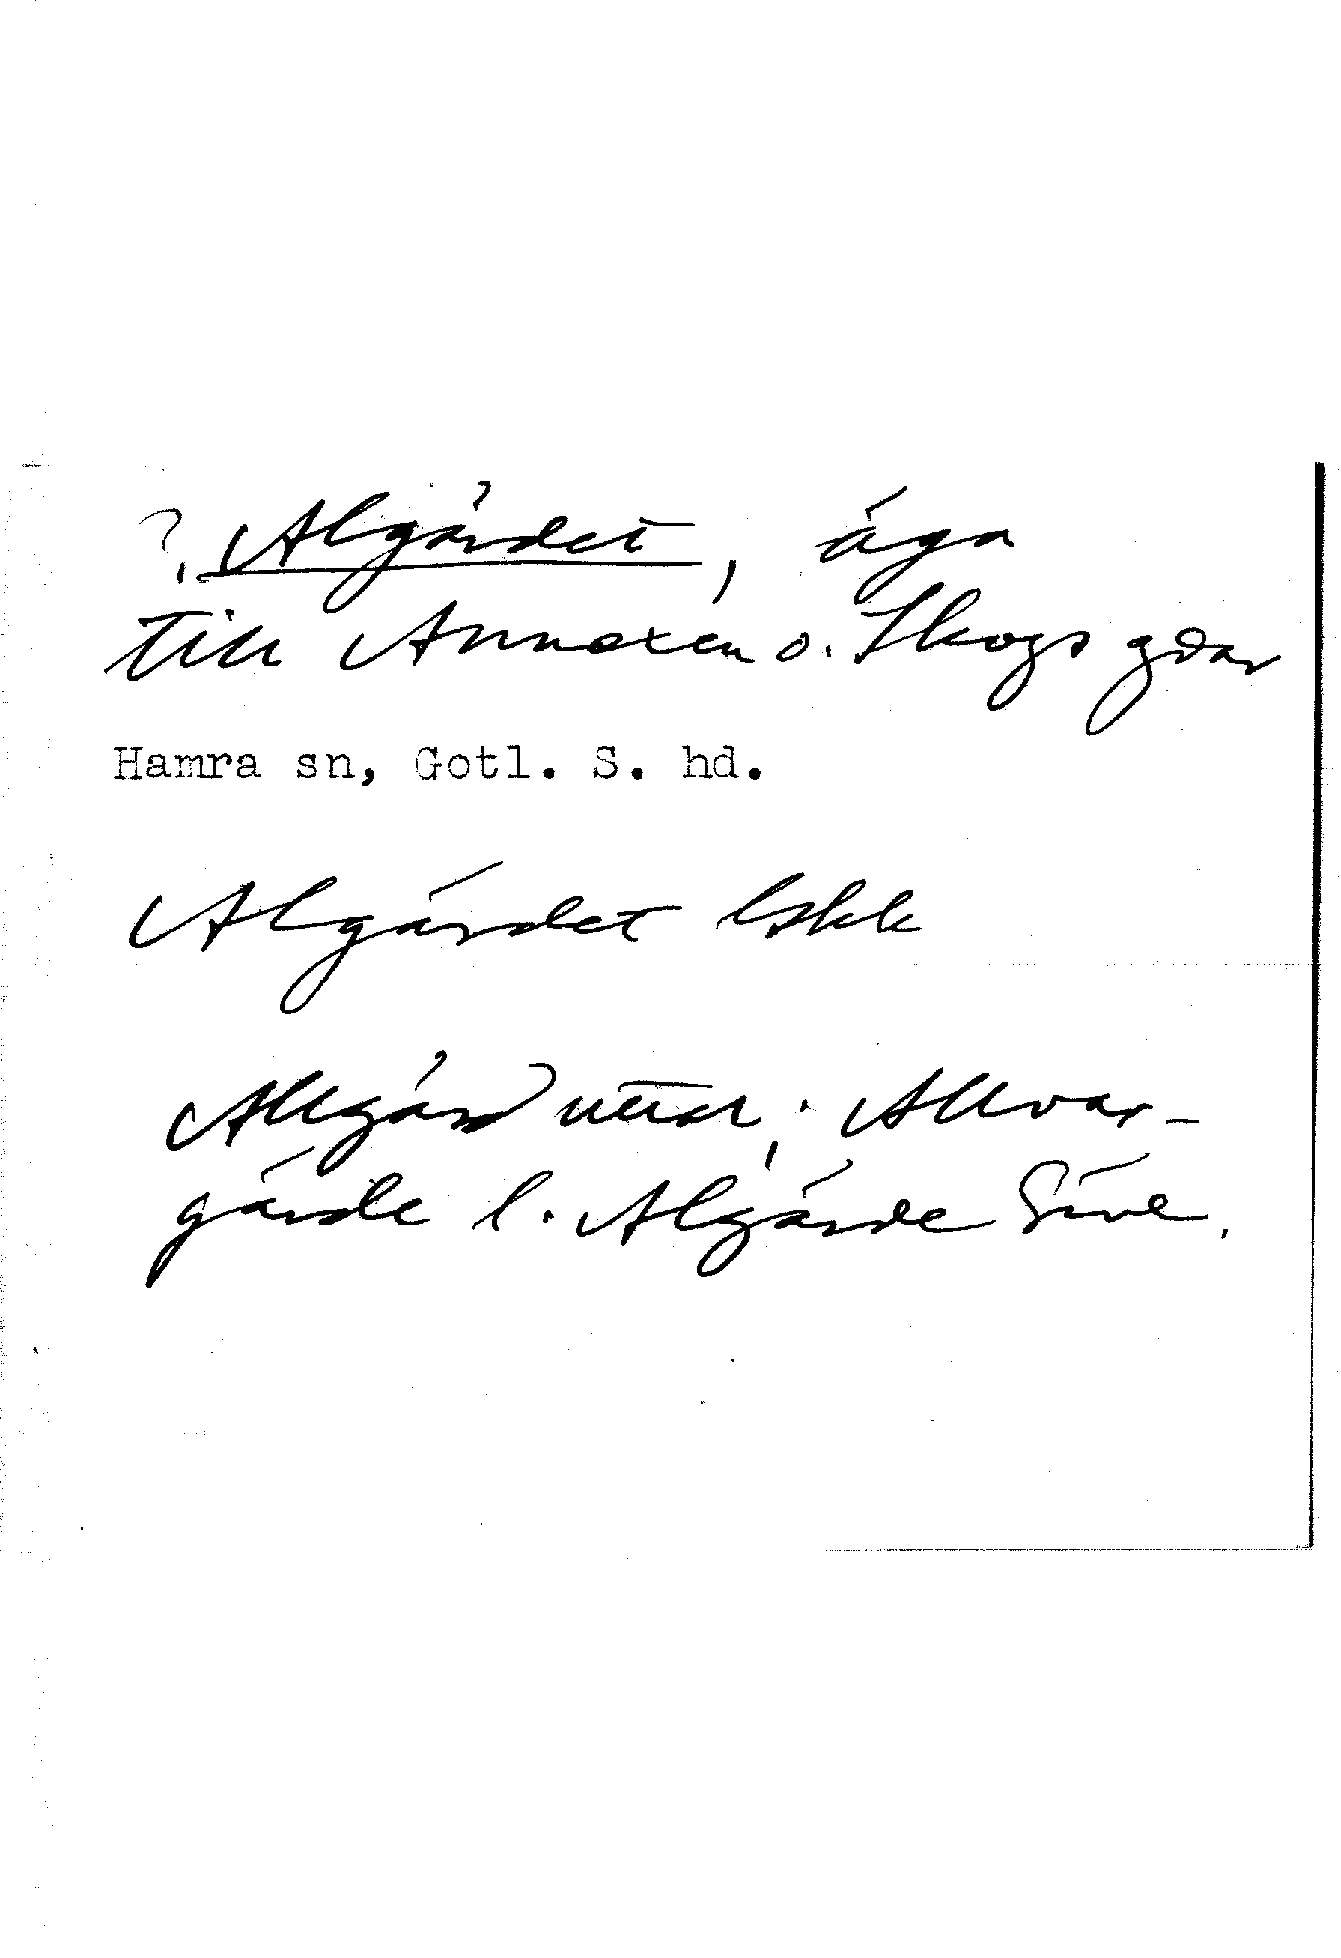 ?, Algärdet, äga
till Annexen o. Skogs gdar
Hamra sn, Gotl. S. hd.
Algärdet lskk
Allgärd uttal; Allvar-
gärde l. Algärde Säve.